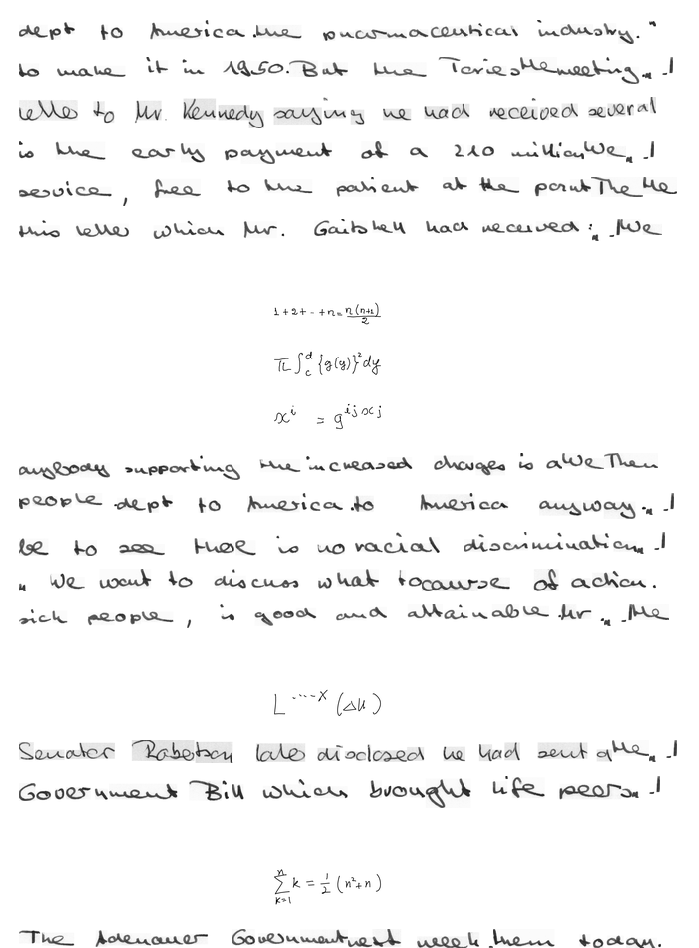 dept to America. the pharmaceutical industry."
to make it in 1950. But the Tories the meeting." .I
letter to Mr. Kennedy saying he had received several
is the early payment of a 210 million We " .I
service, free to the patient at the point The He
this letter which Mr. Gaitskell had received: " .We
1+2+ - +n = \frac{n(n+1)}{2}
\pi \int_c^d \{g(y)\}^2 dy
x^i = g^{ij} x j
anybody supporting the increased charges is a We Then
people dept to America. to America anyway. " .I
be to see there is no racial discrimination " .I
" We want to discuss what to course of action.
sick people, is good and attainable. Mr. " .He
L^{....x} (\Delta u)
Senator Robertson later disclosed he had sent a He " .I
Government Bill which brought life peers " .I
\sum_{k=1}^{n} k = \frac{1}{2} (n^2+n)
The Adenauer Government next week. them today.